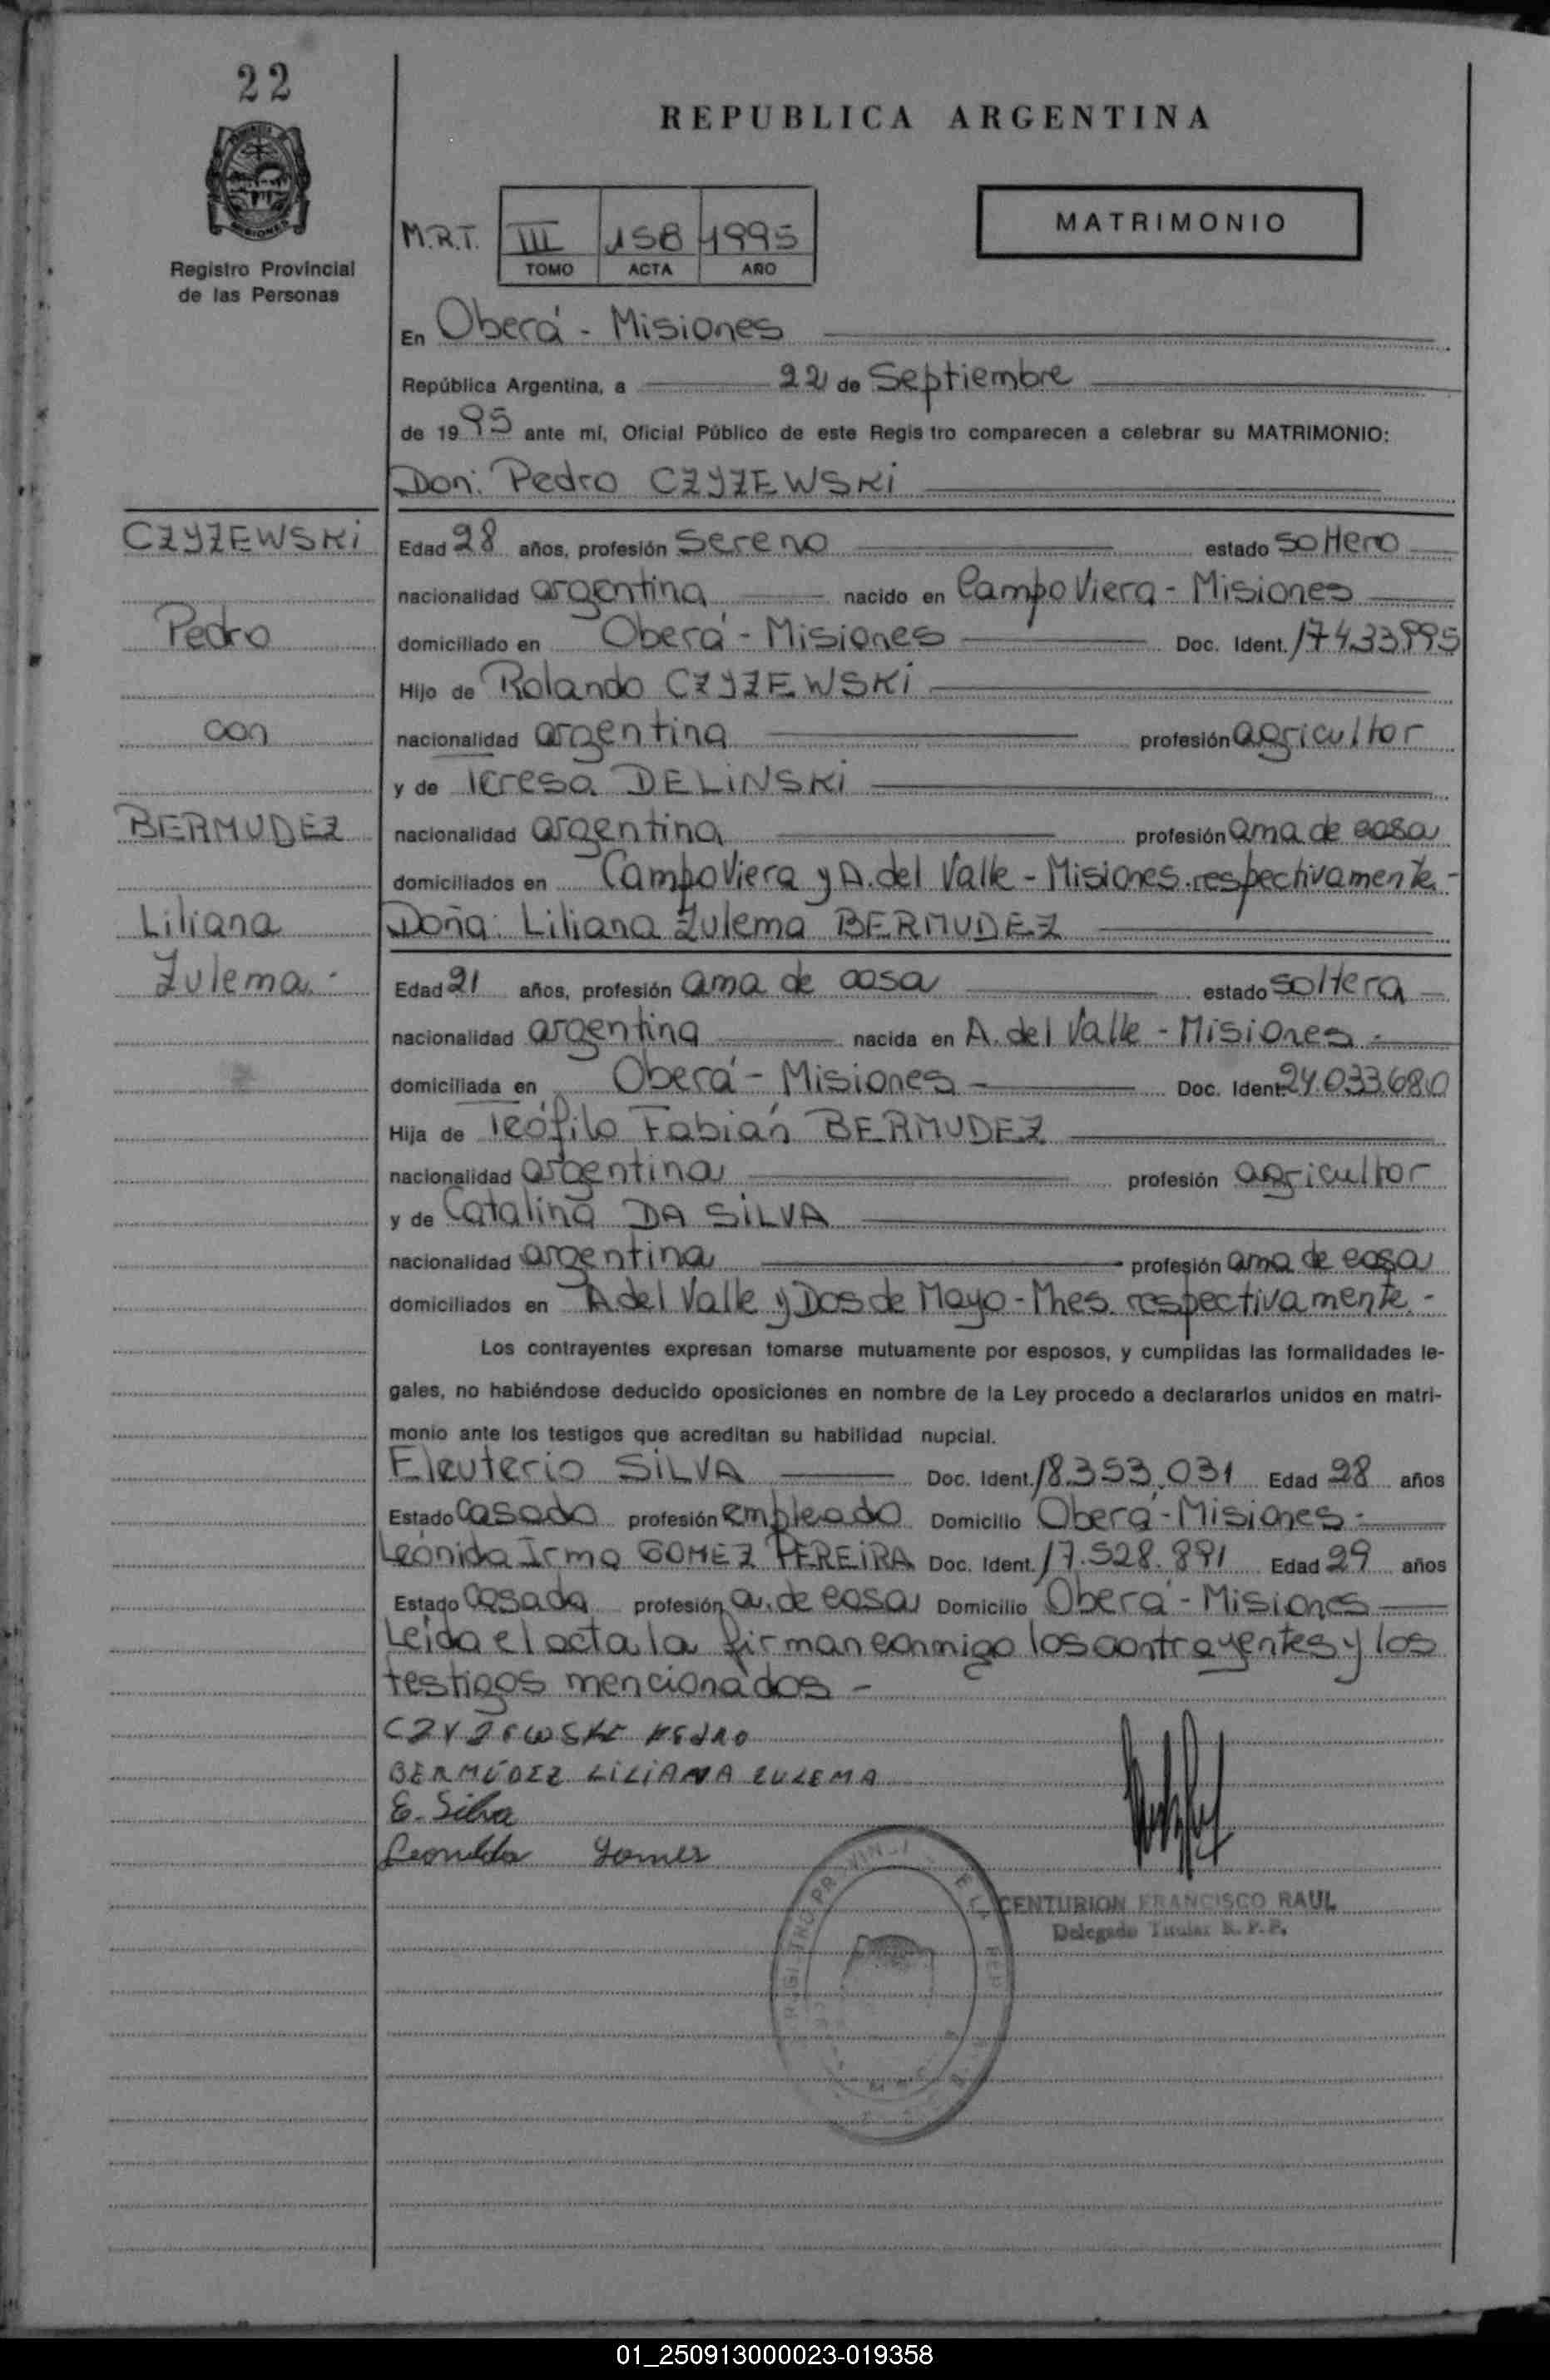 22
REPUBLICA ARGENTINA
MATRIMONIO
M.R.T. III 158 1995
TOMO ACTA AÑO
Registro Provincial
de las Personas
En Oberá - Misiones
República Argentina, a 22 de Septiembre
de 1995 ante mí, Oficial Público de este Regis tro comparecen a celebrar su MATRIMONIO:
Don: Pedro CZYZEWSKi
CZYZEWSKi
Pedro
con
BERMUDEZ
Liliana
Zulema.-
Edad 28 años, profesión sereno estado soltero
nacionalidad argentina nacido en Campo Viera - Misiones
domiciliado en Oberá - Misiones Doc. Ident. 17433995
Hijo de Rolando CZYZEWSKi
nacionalidad argentina profesión agricultor
y de Teresa DELiNSKi
nacionalidad argentina profesión ama de casa
domiciliados en Campo Viera y A. del Valle - Misiones. respectivamente.-
Doña: Liliana Zulema BERMUDEZ
Edad 21 años, profesión ama de casa estado soltera
nacionalidad argentina nacida en A. del Valle - Misiones.-
domiciliada en Oberá - Misiones - Doc. Ident. 24.033.680
Hija de Teófilo Fabián BERMUDEZ
nacionalidad argentina profesión agricultor
y de Catalina DA SiLVA
nacionalidad argentina profesión ama de casa
domiciliados en A del Valle y Dos de Mayo - Mnes. respectivamente.-
Los contrayentes expresan tomarse mutuamente por esposos, y cumplidas las formalidades le-
gales, no habiéndose deducido oposiciones en nombre de la Ley procedo a declararlos unidos en matri-
monio ante los testigos que acreditan su habilidad nupcial.
Eleuterio SiLVA Doc. Ident. 18.353.031 Edad 28 años
Estado Casado profesión empleado Domicilio Oberá - Misiones.-
Leónida Irma GOMEZ PEREiRA Doc. Ident. 17.528.891 Edad 29 años
Estado Casada profesión a. de casa Domicilio Oberá - Misiones
Leída el acta la firman conmigo los contrayentes y los
testigos mencionados -
CZYZEWSKI PEDRO
BERMÚDEZ LILIANA ZULEMA
E. Silva
Leonida Gomez
CENTURION FRANCISCO RAUL
Delegado Titular R. P. P.
01_250913000023-019358